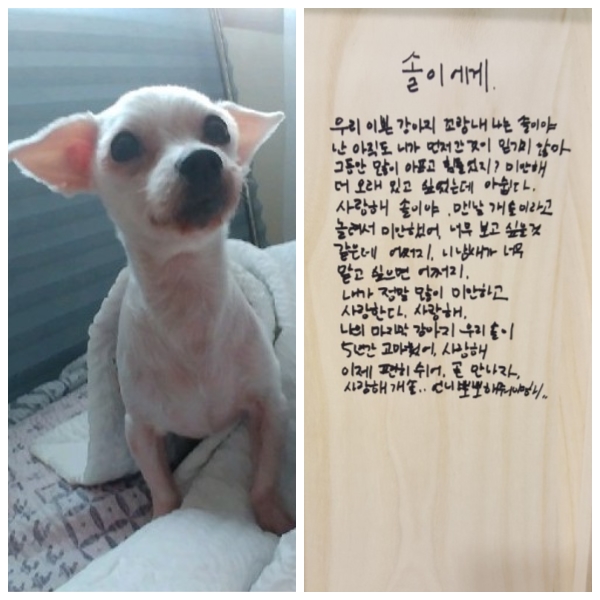 솔이에게.
우리 이쁜 강아지 꼬랑내 나는 솔이야
난 아직도 니가 먼저간것이 믿기지 않아
그동안 많이 아프고 힘들었지? 미안해
더 오래 있고 싶었는데 아쉽다.
사랑해 솔이야. 맨날 개솔이라고
놀려서 미안했어, 너무 보고 싶을것
같은데 어쩌지, 니 냄새가 너무
맡고 싶으면 어쩌지.
내가 정말 많이 미안하고
사랑한다. 사랑해.
나의 마지막 강아지 우리 솔이
5년간 고마웠어, 사랑해
이제 편히 쉬어. 곧 만나자,
사랑해 개솔.. 언니 뽀뽀해